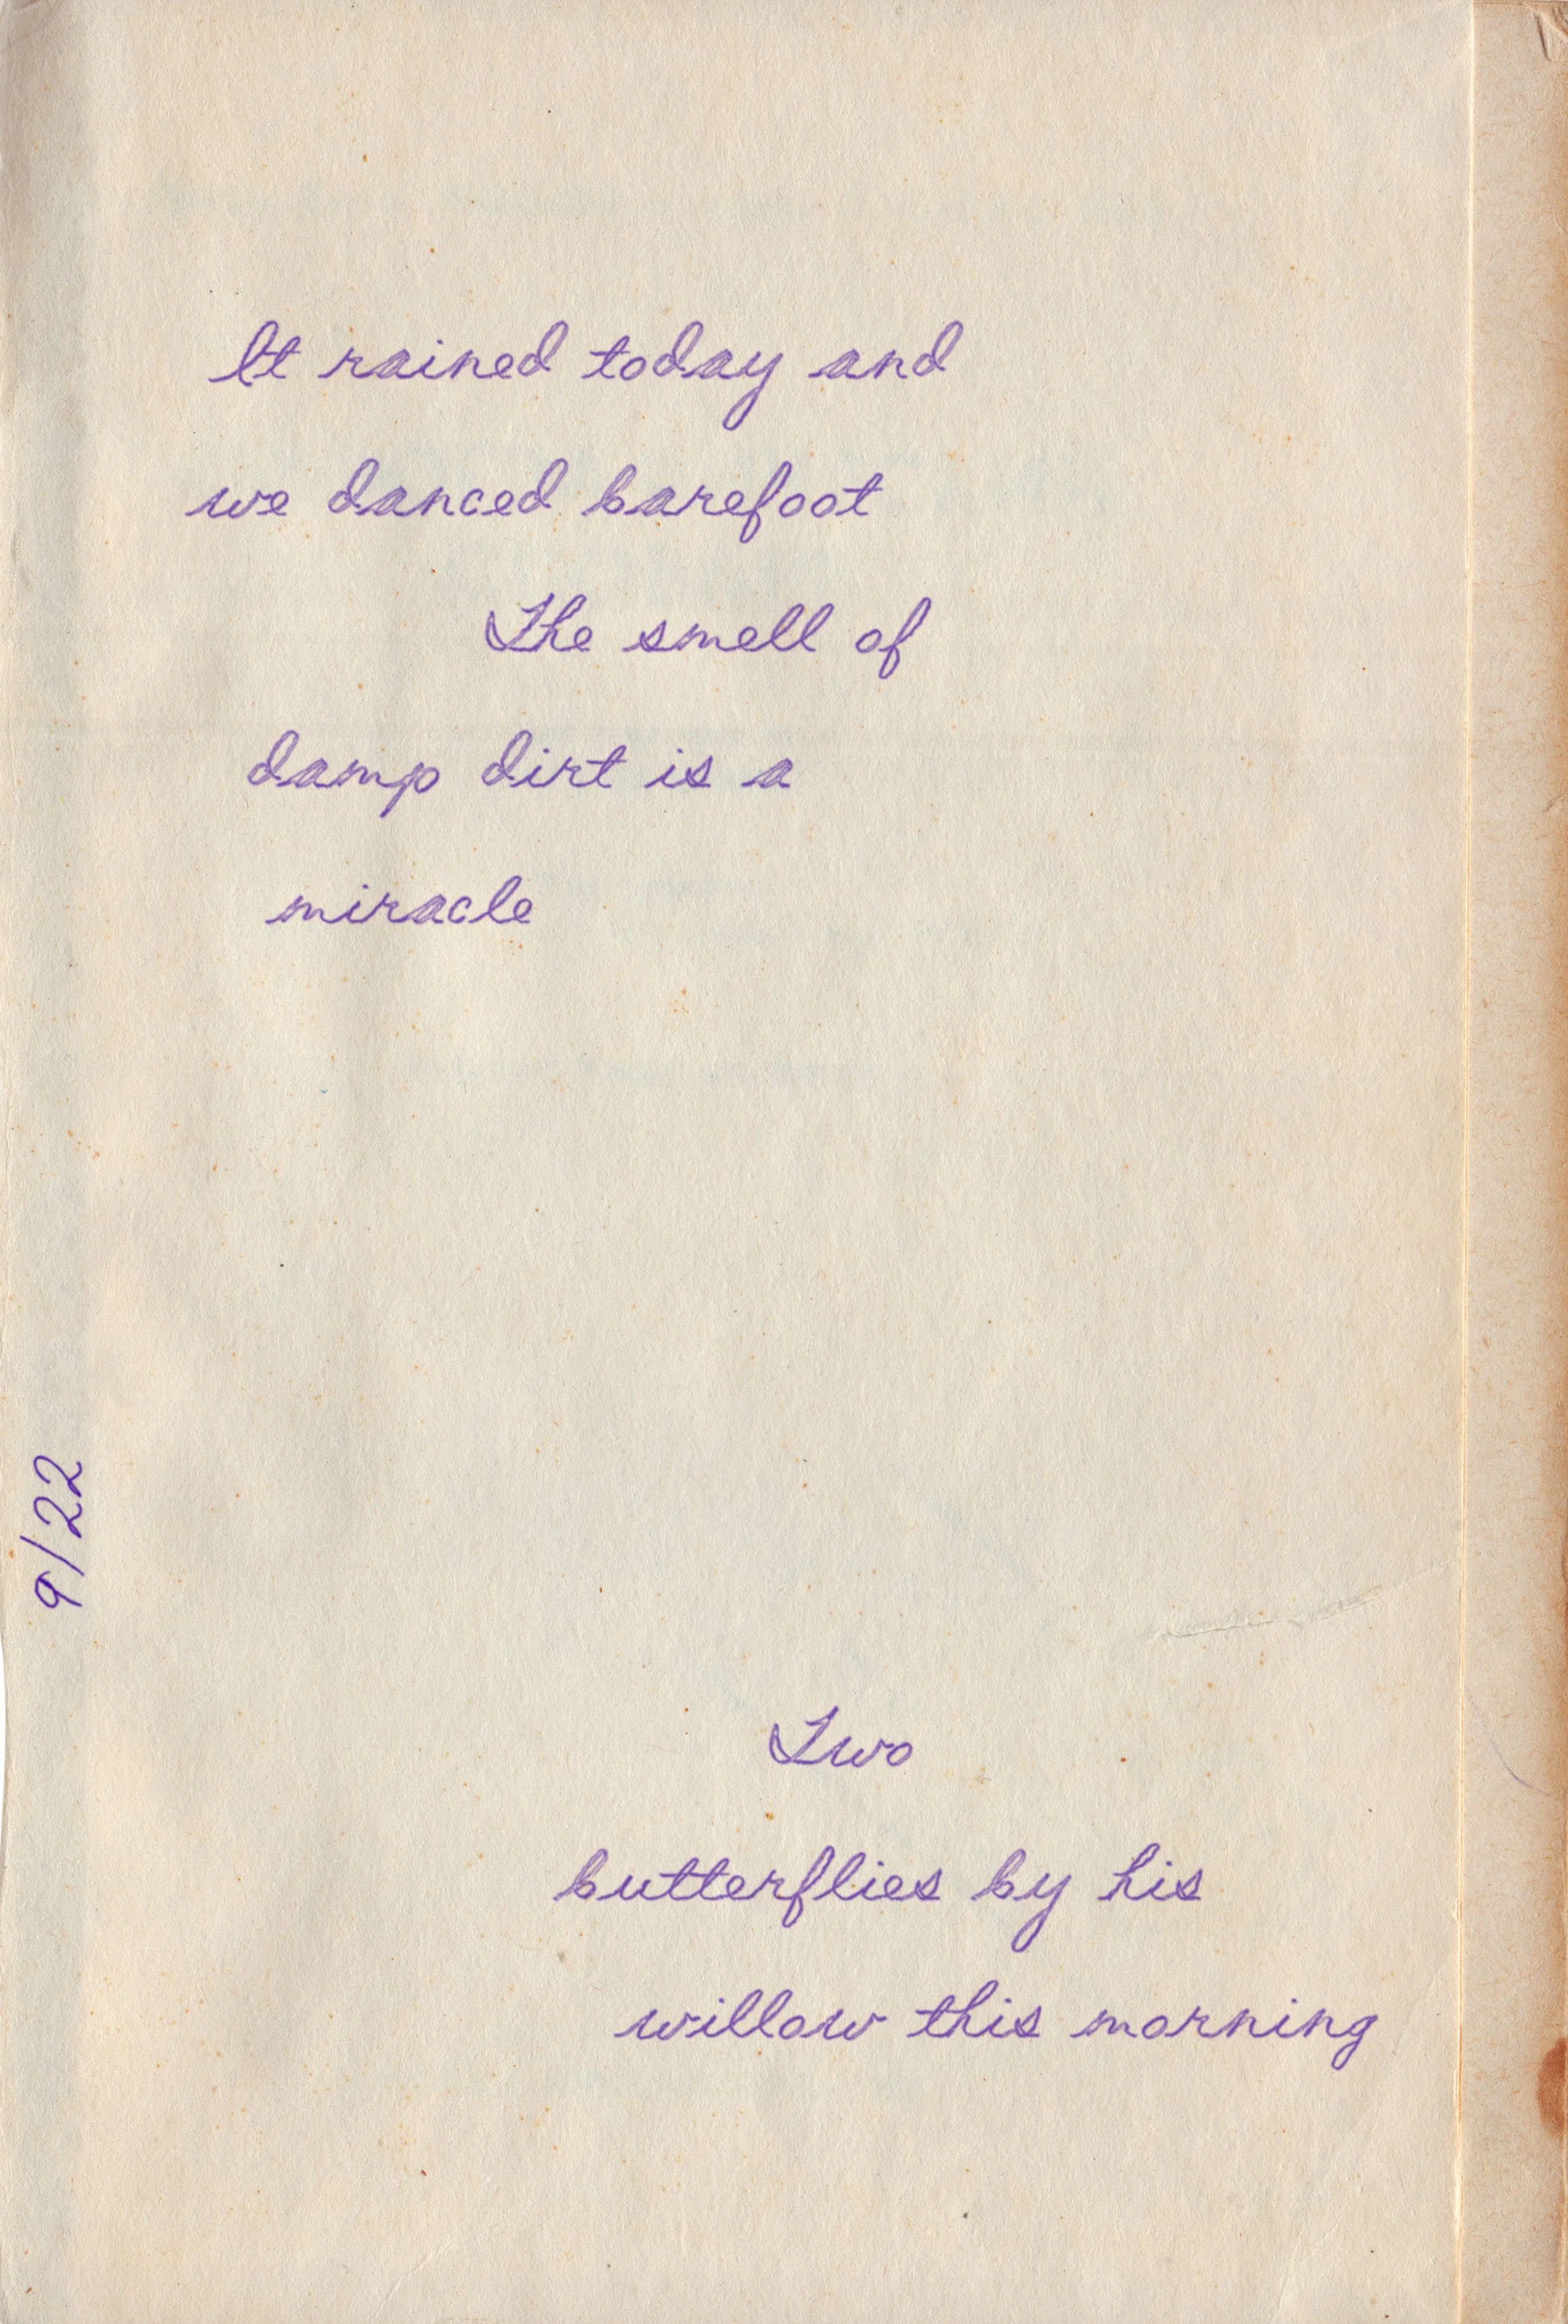 It rained today and
we danced barefoot
The smell of
damp dirt is a
miracle
9/22
Two
butterflies by his
willow this morning